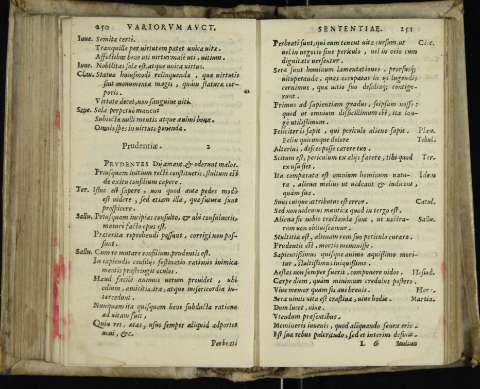 250 VARIORVM AVCT.
Iuue. Semita certi.
Tranquilla per virtutem patet vnica vita.
Affectibus bene uti virtus: male uti, uitium.
Iuue. Nobilitas sola est, atque unica virtus.
Clau. Statua huiusmodi relinquenda, qua virtutis
sint monumenta magis, quàm statura cor-
poris.
Virtute decet, non sanguine niti.
Sene. Sola perpetuò manent
Subiecta nulli mentis atque animi bona.
Omnis spes in virtute ponenda.
Prudentia. 2
PRVDENTES Dij amant, & oderunt malos.
Priusquam initium recti constitueris, stultum est
de exitu consilium capere.
Ter. Istuc est sapere, non quod ante pedes modò
est videre, sed etiam illa, quæ futura sunt
prospicere.
Salu. Priusquam incipias consulto, & ubi consulueris,
maturè facto opus est.
Præterita reprehendi possunt, corrigi non pos-
sunt.
Salu. Cum re mutare consilium prudentis est.
In capiendis consiliis festinatio rationis inimica
mentis præstringit oculos.
Haud facilè animus verum prouidet, ubi
odium, amicitia, ira, atque misericordia in-
tercedunt.
Nunquam ita quisquam bene subducta ratione
ad vitam fuit,
Quin res, ætas, usus semper aliquid adportet
noui, &c.
Perbeati
SENTENTIAE. 251
Perbeati sunt, qui eum tenent vitæ cursum, ut Cic.
vel in negocio sine periculo, vel in ocio cum
dignitate versentur.
Sera sunt hominum lamentationes, prorsusq́;
Primus ad sapientiam gradus, seipsum nosse:
quod ut omnium difficillimum est, ita lon-
gè utilissimum.
Feliciter is sapit, qui periculo alieno sapit. Plau.
Felix quicunque dolore Tibul.
Alterius, disces posse carere tuo.
Scitum est, periculum ex alijs facere, tibi quod Ter.
ex usu siet.
Ita comparata est omnium hominum natu- Idem
ra, aliena melius ut videant & iudicent,
quàm sua.
Suus cuique attributus est error. Catul.
Sed non videmus manticæ quod in tergo est.
Stultitia est, alienam rem suo periculo curare.
Prudentis est, mortis meminisse.
Sapientissimus quisque animo æquissimo mori-
tur, stultissimus iniquissimo.
Aestas non semper fuerit, componite nidos. Hesiod.
Carpe diem, quàm minimum credula postero.
Viue memor quàm sis æui breuis. Hor.
Sera nimis vita est crastina, viue hodie. Martia.
Dum licet, viue.
Vtendum præsentibus.
Est sua rebus pulcritudo, sed et interim
L 6